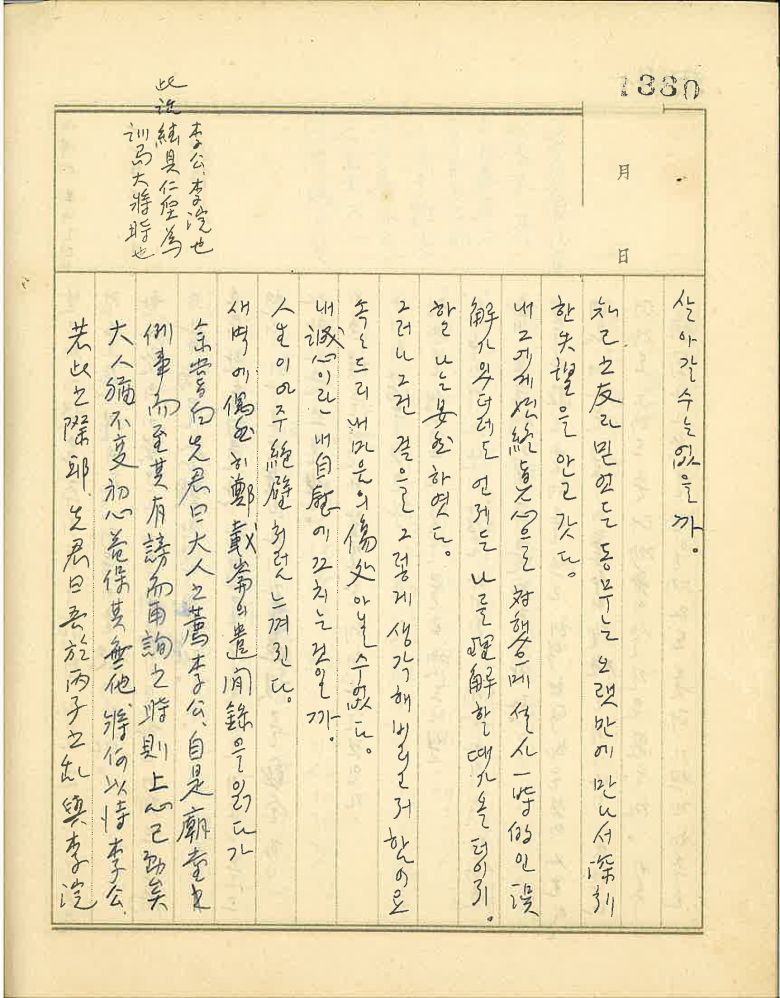 1380
月
日
살아갈 수는 없을까.
知己之友라 믿었든 동무는 오랫만에 만나서 深刻
한 失望을 안고 갓다.
내 그에게 始終 眞心으로 対했으메 설사 一時的인 誤
解가 있더래도 언제든 나를 理解할 때가 올 터이지.
하고 나는  安心하였다.
그러나 그건 겉으로 그렇게 생각해 버리고저 함이요
속은 드디 내 마음의 傷処 아닐 수 없다.
내 誠心이란 내 自慰에 끄치는 것일까.
人生이 아주 絶壁처럼 느껴진다.
새벽에 偶然히 鄭載崙의 遣閒錄을 읽다가
余嘗白先君曰大人之薦李公自是廟堂之
例事而至其有謗而再詢之時則上心已動矣
大人猶不变初心益保其無他將何以恃李公
若此之際耶. 先君曰吾於丙子之乱與李浣
李公.李浣也
此述 綾具仁垕為
訓局大將時也